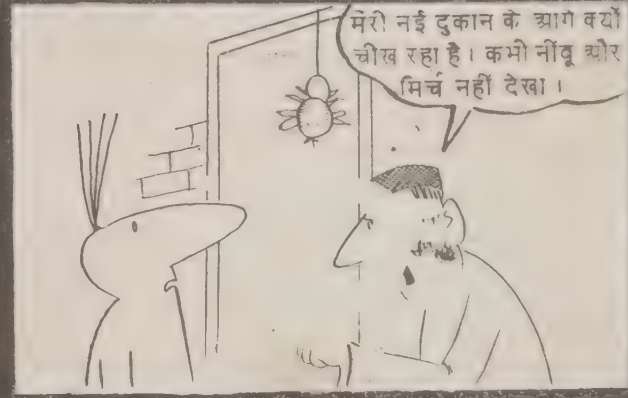 मेरी नई दुकान के आगे क्यों
चीख रहा है। कभी नींबू और
मिर्च नहीं देखा।